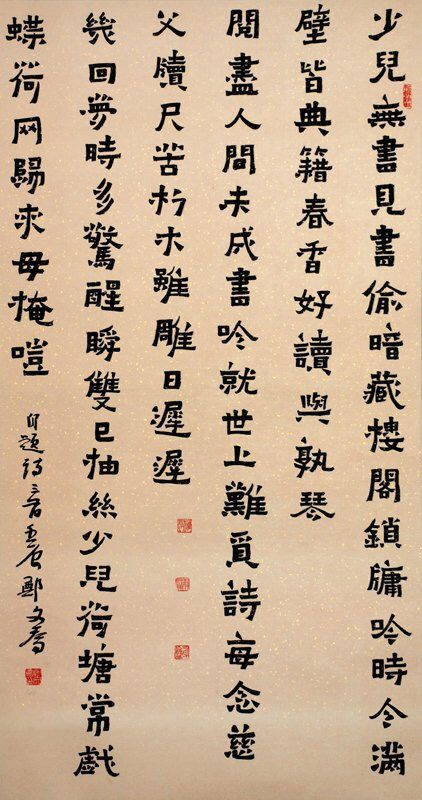 少兒無書見書偷暗藏樓閣鎖牖吟時今滿
壁皆典籍春香好讀與孰琴
閱盡人間未成書吟就世上難覓詩每念慈
父牘尺苦朽木雖雕日遲遲
幾回夢時多驚醒瞬雙已抽絲少兒荷塘常戲
蝶荷网歸來母掩
自題詩三首 鄭文喬